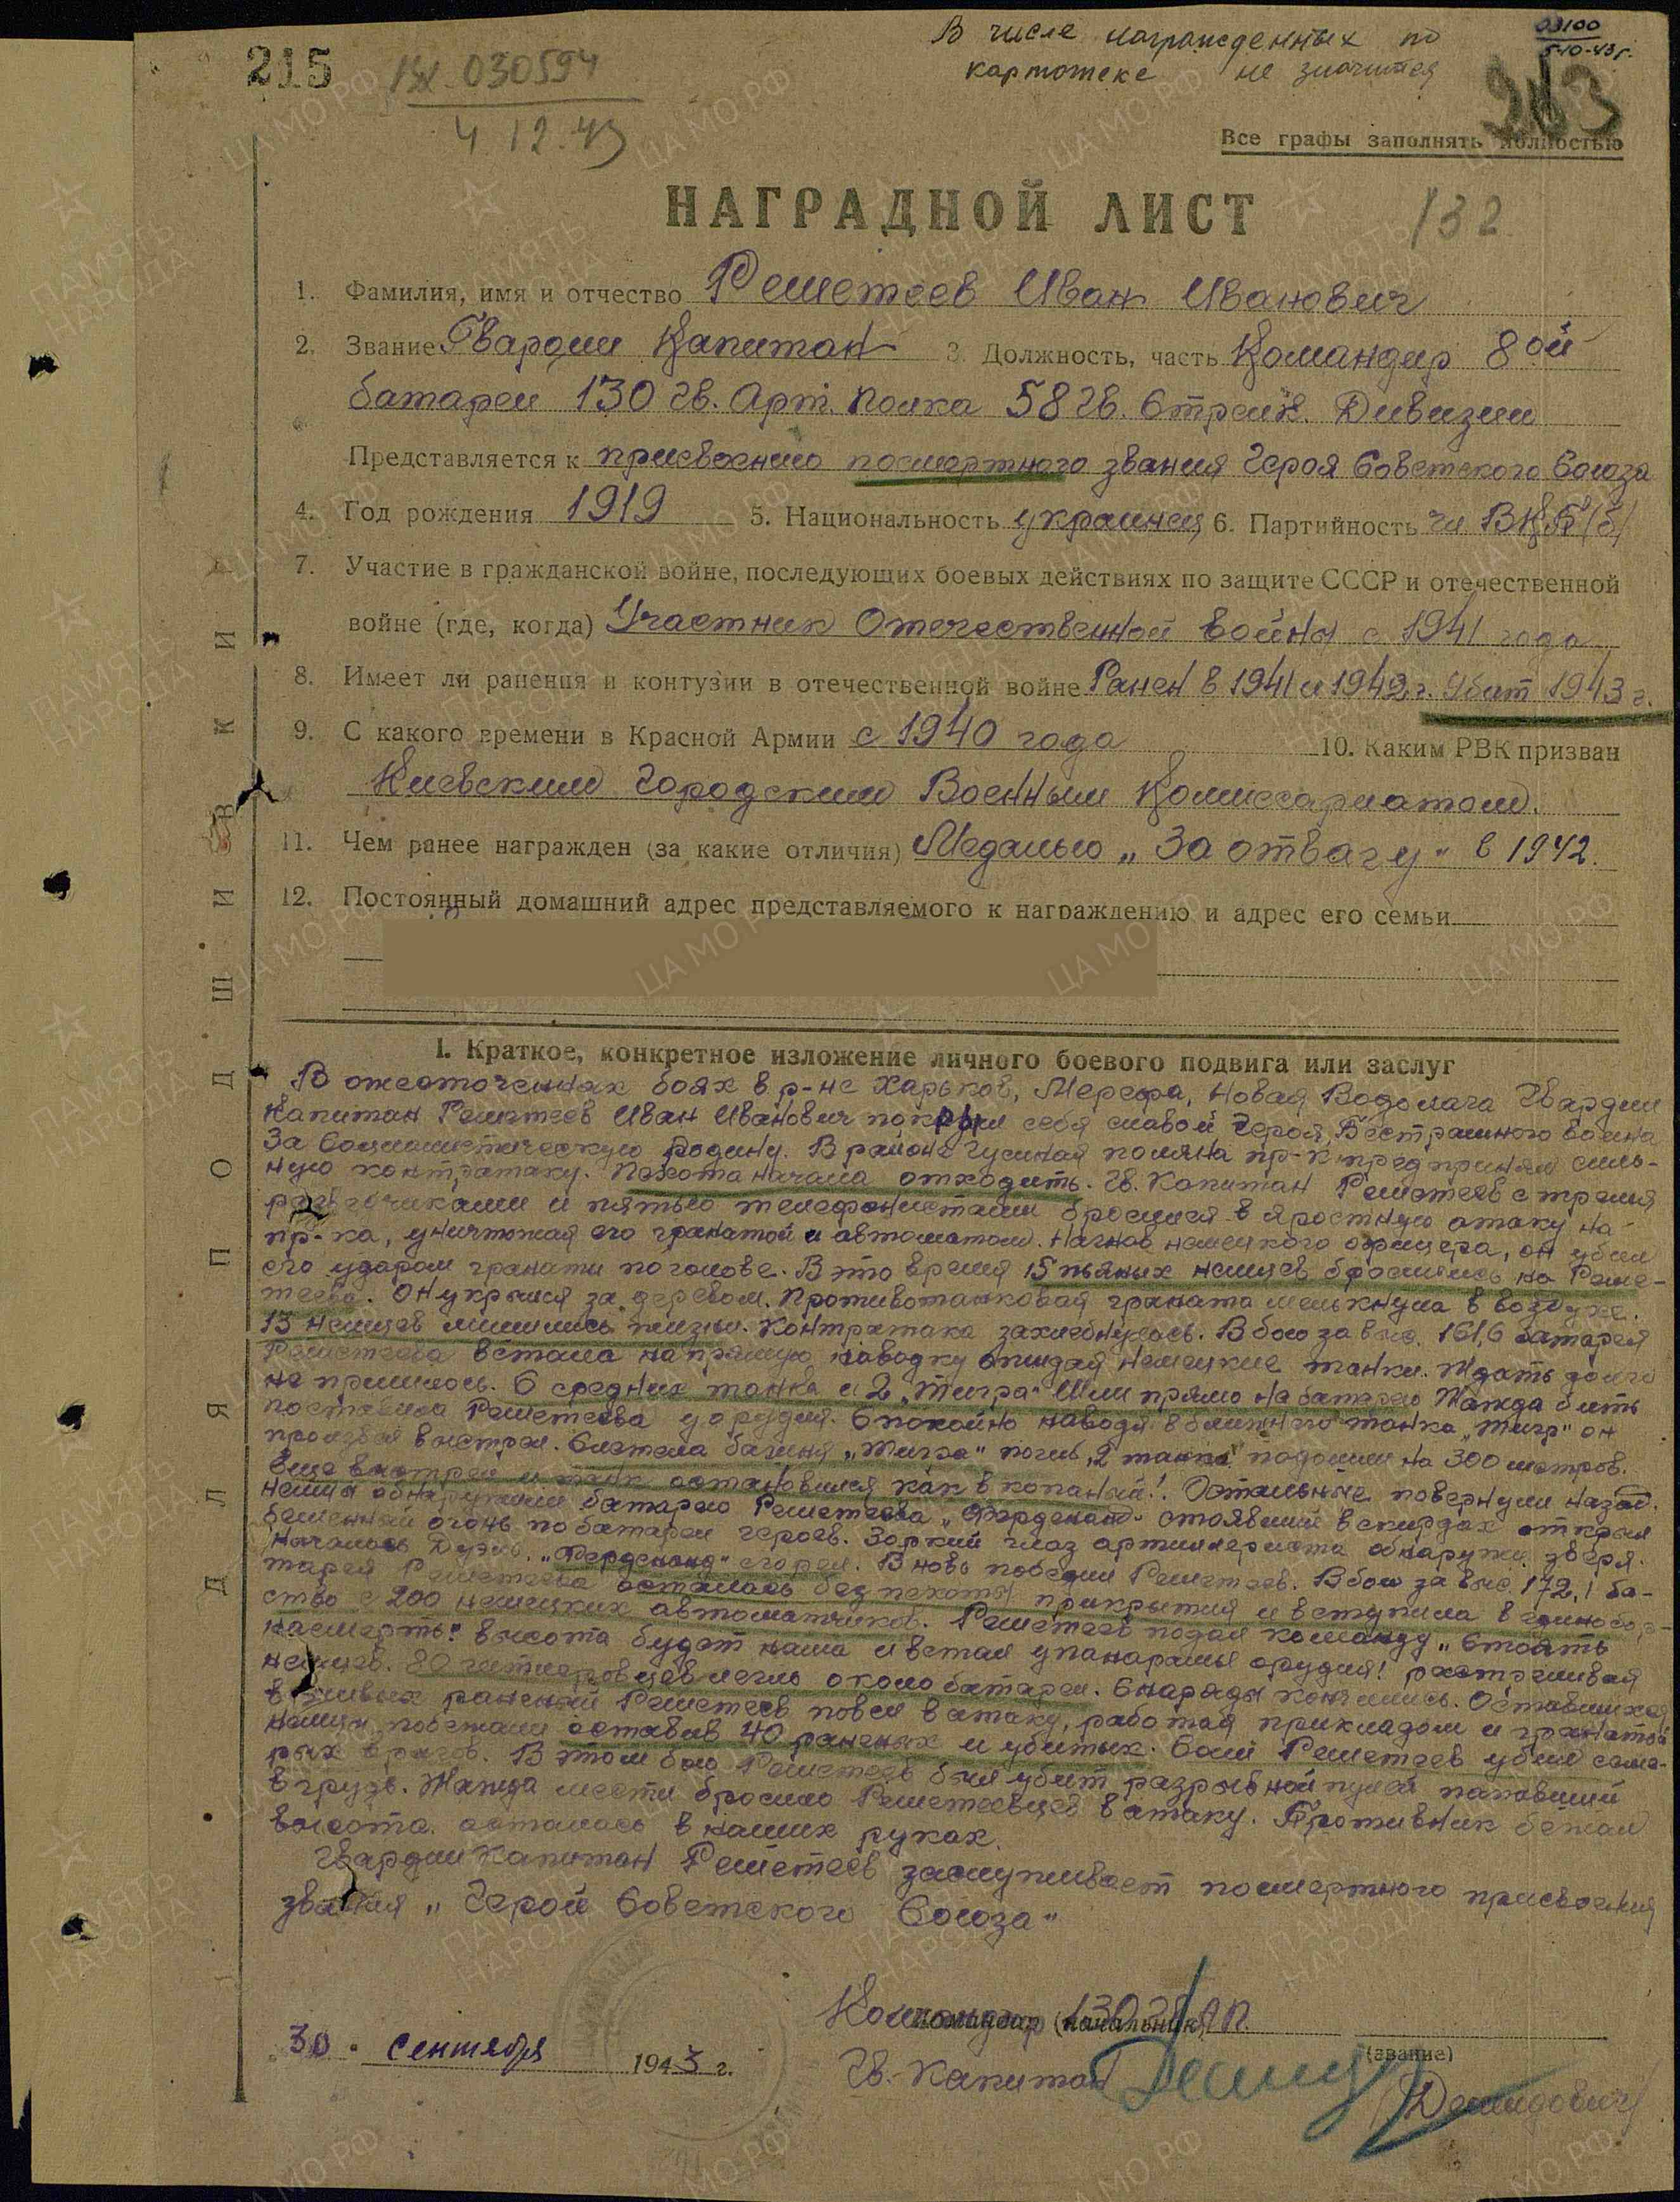 В числе награжденных по
картотеке не значится
03100
5-10-43 г.
215
Вх. 030594
4 12.43
263
Все графы заполнять полностью
НАГРАДНОЙ ЛИСТ
132
1. Фамилия, имя и отчество Решетеев Иван Иванович
2. Звание Гвардии Капитан 3. Должность, часть Командир 8ой
батареи 130 Гв. Арт. Полка 58 Гв. Стрелк. Дивизии
Представляется к присвоению посмертного звания Героя Советского Союза
4. Год рождения 1919 5. Национальность украинец 6. Партийность чл. ВКП/б/
7. Участие в гражданской войне, последующих боевых действиях по защите СССР и отечественной
войне (где, когда) Участник Отечественной войны с 1941 года
8. Имеет ли ранения и контузии в отечественной войне Ранен в 1941 и 1942 г. Убит 1943 г.
9. С какого времени в Красной Армии с 1940 года 10. Каким РВК призван
Киевским Городским Военным Комиссариатом.
11. Чем ранее награжден (за какие отличия) Медалью „За отвагу" в 1942.
12. Постоянный домашний адрес представляемого к награждению и адрес его семьи
ДЛЯ ПОДШИВКИ
I. Краткое, конкретное изложение личного боевого подвига или заслуг
В ожесточенных боях в р-не Харьков, Мерефа, Новая Водолага Гвардии
Капитан Решетеев Иван Иванович покрыл себя славой Героя, Бестрашного воина
За Социалистическую Родину. В районе Гусиная поляна пр-к предпринял силь-
ную контратаку. Пехота начала отходить. Гв. Капитан Решетеев с тремя
разведчиками и пятью телефонистами бросился в яростную атаку на
пр-ка, уничтожая его гранатой и автоматом. Нагнав немецкого офицера, он убил
его ударом гранаты по голове. В это время 15 пьяных немцев бросились на Реше-
теева. Он укрылся за деревом. Противотанковая граната мелькнула в воздухе.
13 немцев лишились жизни. Контратака захлебнулась. В бою за выс. 161,6 батарея
Решетеева встала на прямую наводку ожидая немецкие танки. Ждать долго
не пришлось. 6 средних танка и 2 „Тигра" Шли прямо на батарею Жажда бить
поставила Решетеева у орудия. Спокойно наводя в ближнего танка „Тигр" он
произвел выстрел. Слетела башня „Тигра" 2 танка подошли на 300 метров.
Еще выстрел и танк остановился как вкопаный! Остальные повернули назад.
Немцы обнаружили батарею Решетеева „Ферденанд" стоявший в скирдах открыл
бешенный огонь по батареи героев. Зоркий глаз артиллериста обнаружил зверя.
Началась Дуэль. „Ферденанд" сгорел. Вновь победил Решетеев. В бою за выс. 172,1 ба-
тарея Решетеева осталась без пехоты прикрытия и вступила в единобор-
ство с 200 немецких автоматчиков. Решетеев подал команду „Стоять
насмерть" высота будет наша и встал у панарамы орудия! расстреливая
немцев. 80 гитлеровцев легло около батареи. Снаряды кончились. Оставшихся
в живых раненый Решетеев повел в атаку, работая прикладом и гранатой
немцы побежали оставив 40 раненых и убитых. Сам Решетеев убил
врагов. В этом бою Решетеев был убит разрывной пулей попавший
в грудь. Жажда мести бросило Решетеевцев в атаку. Противник бежал
высота осталась в наших руках.
Гвардии Капитан Решетеев заслуживает посмертного присвоения
звания „Герой Советского Союза"
30 сентября 1943 г.
Командир 130 Гв. АП.
Командир (начальник)
(звание)
Гв. Капитан /Демидович/